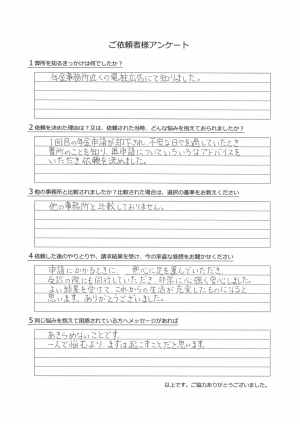 ご依頼者様アンケート
1 弊所を知るきっかけは何でしたか？
年金事務所近くの電柱広告にて知りました。
2 依頼を決めた理由は？又は、依頼された当時、どんな悩みを抱えておられましたか？
1回目の年金申請が却下され、不安な日々を過していたとき
貴所のことを知り、再申請についていろいろなアドバイスを
いただき依頼を決めました。
3 他の事務所と比較されましたか？比較された場合は、選択の基準をお教えください
他の事務所と比較しておりません。
4 依頼した後のやりとりや、請求結果を受け、今の率直な感想をお聞かせください
申請にかかるときに、 熱心に足を運んでいただき
受診の際にも同行していただき、非常に心強く安心しました。
よい結果を受けて、これからの生活が充実したものになると
思います。ありがとうございました。
5 同じ悩みを抱えて困惑されている方へメッセージがあれば
あきらめないことです。
一人で悩むより、まずは起こすことだと思います。
以上です。ご協力ありがとうございました。